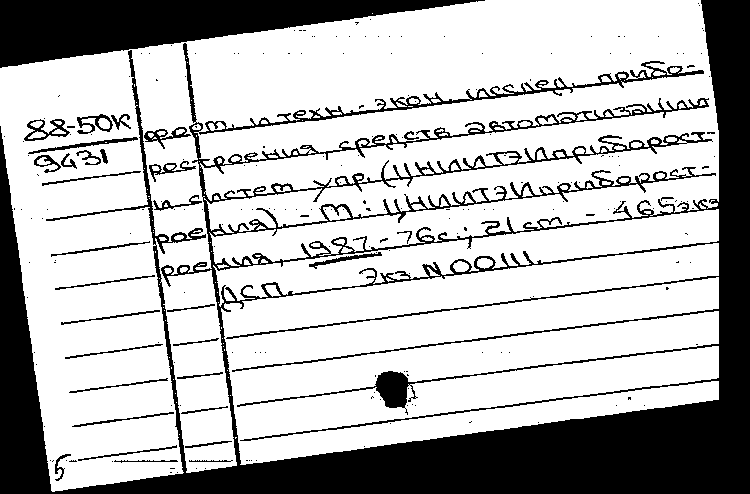 88-50К
9431
форм. и техн.-экон. исслед. прибо-
ростроения, средств автоматизации
и систем упр. (ЦНИИТЭИприборост-
роения). - М.: ЦНИИТЭИприборост-
роения, 1987. - 76с.; 21 см. - 465экз
ДСП. Экз. N 00111.
5